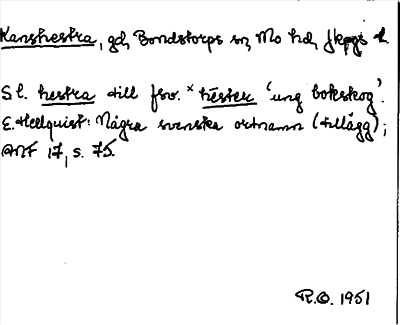 Kanshestra, gd, Bondstorps sn, Mo hd, Jkpgs l.
Sl. hestra till fsv. *hēster 'ung bokskog'.
E. Hellquist: Några svenska ortnamn (tillägg);
ANF 17, s. 75.
R.O. 1951